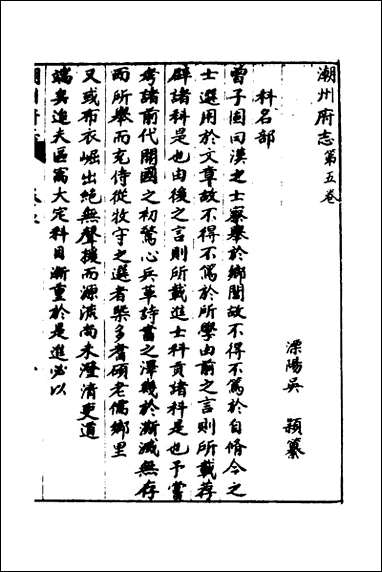 潮州府志第五卷
溧陽吳 穎纂
科名部
曾子固曰漢之士察舉於鄉閭故不得不篤於自脩今之
士選用於文章故不得不篤於所學由前之言則所載荐
辟諸科是也由後之言則所載進士科貢諸科是也予嘗
考諸前代開國之初驚心兵革詩書之澤幾於漸滅無存
而所舉而充侍從牧守之選者槩多耆碩老儒鄉里
又或布衣崛出絕無聲援而源流尚未澄清吏道
端矣逮夫區寓大定科目漸重於是進必以